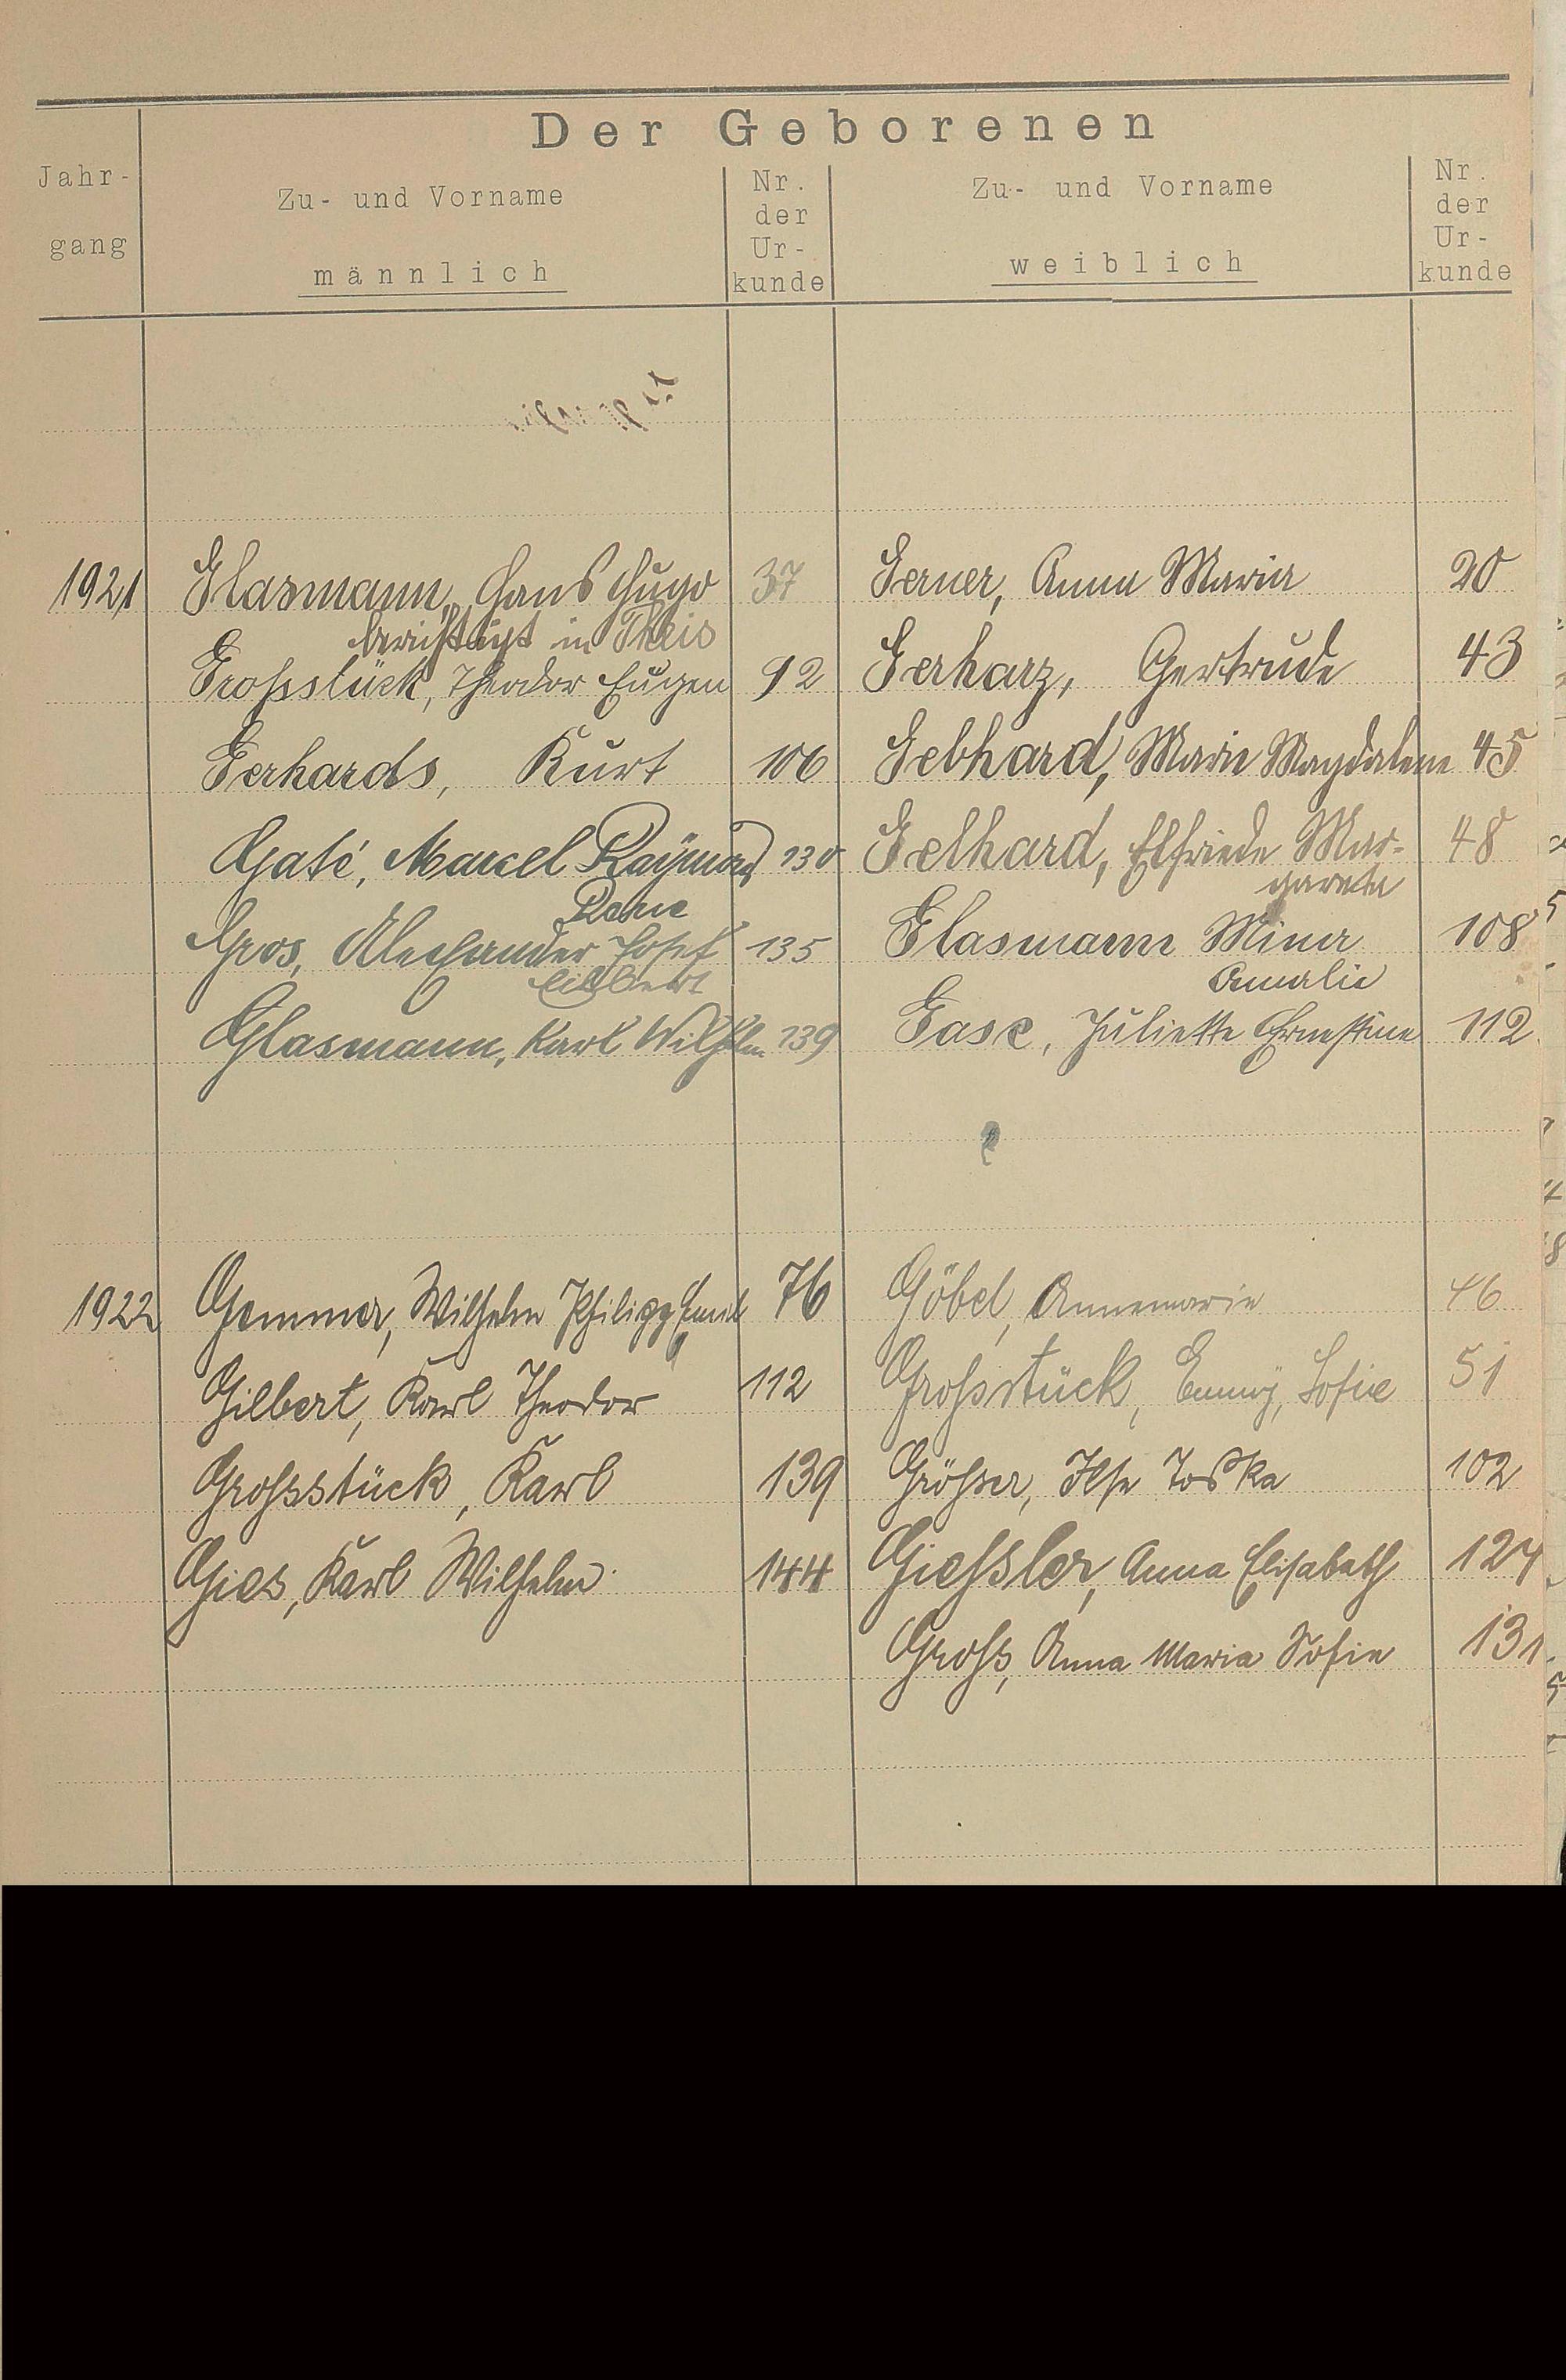 Der Geborenen
Jahr-
gang
Zu- und Vorname
männlich
Nr.
der
Ur-
kunde
Zu- und Vorname
weiblich
Nr.
der
Ur-
kunde
1921 Glasmann, Hans Hugo 37 Gerner, Anna Maria 20
berichtigt in Theis
Großstück, Theodor Eugen 92 Gerharz, Gertrude 43
Gerhards, Kurt 106 Gebhard, Marie Magdalene 45
Gaté, Marcel Raymond 130 Gelhard, Elfriede Mar- 48
René gareta
Gros, Alexander Josef 135 Glasmann Mina 108
Amalie
Glasmann, Karl Wilhelm 139 Gase, Juliette Ernestine 112
1922 Gemmer, Wilhelm Philipp Emil 76 Göbel, Annemarie 46
Gilbert, Karl Theodor 112 Großstück, Emmy, Sofie 51
Grossstück, Karl 139 Größer, Ilse Toska 102
Gies, Karl Wilhelm 144 Giessler, Anna Elisabeth 127
Gross, Anna Maria Sofie 131